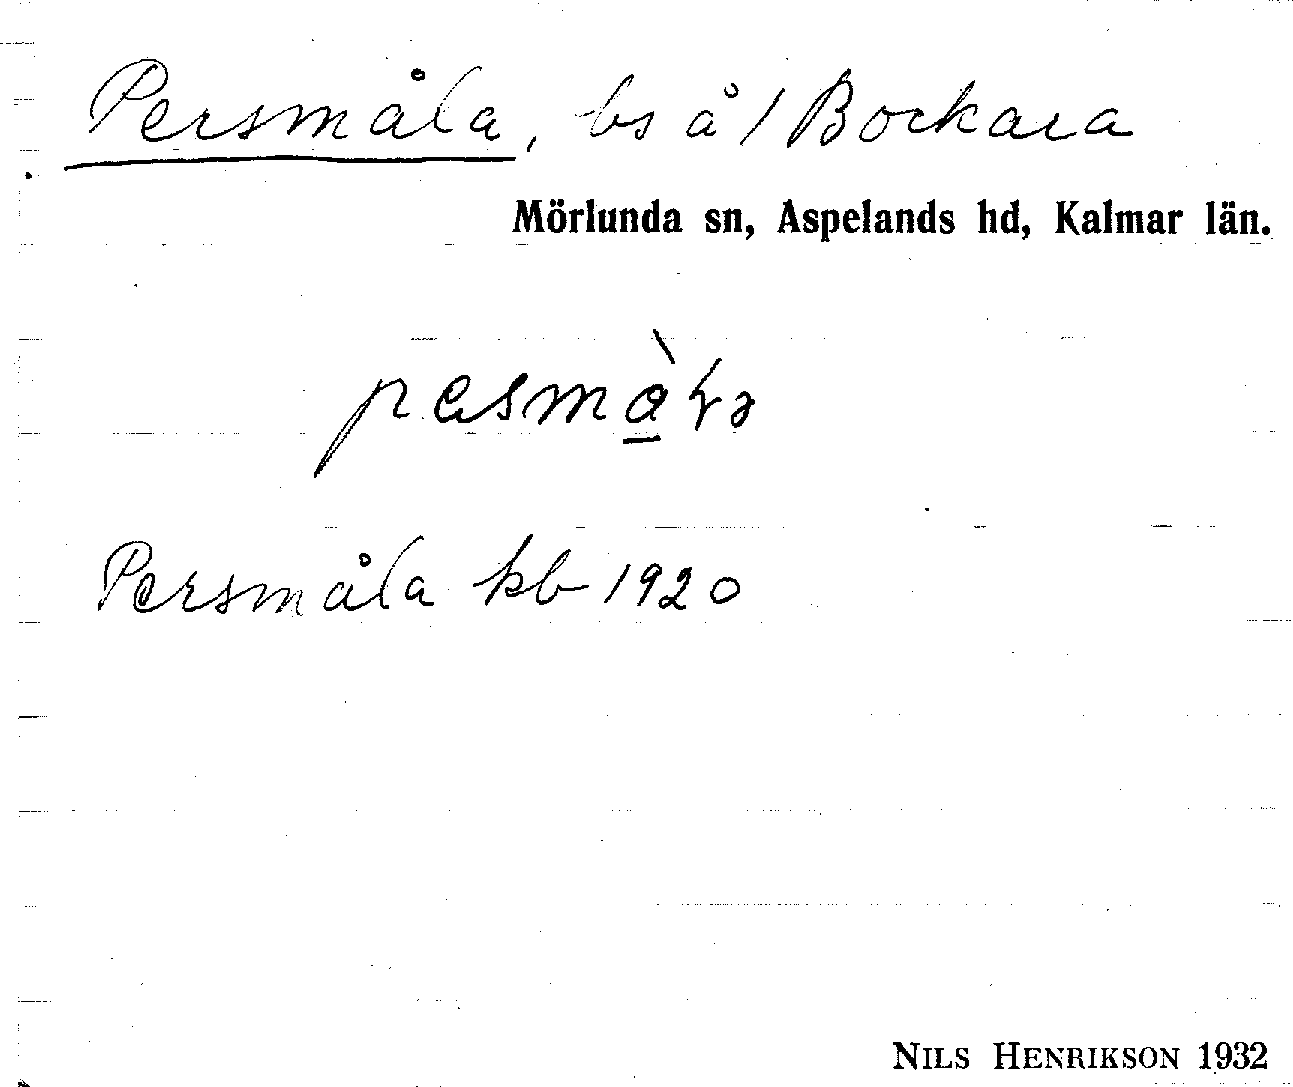 Persmåla, bs å 1 Bockara
Mörlunda sn, Aspelands hd, Kalmar län.
Persmåla kb 1920
NILS HENRIKSON 1932